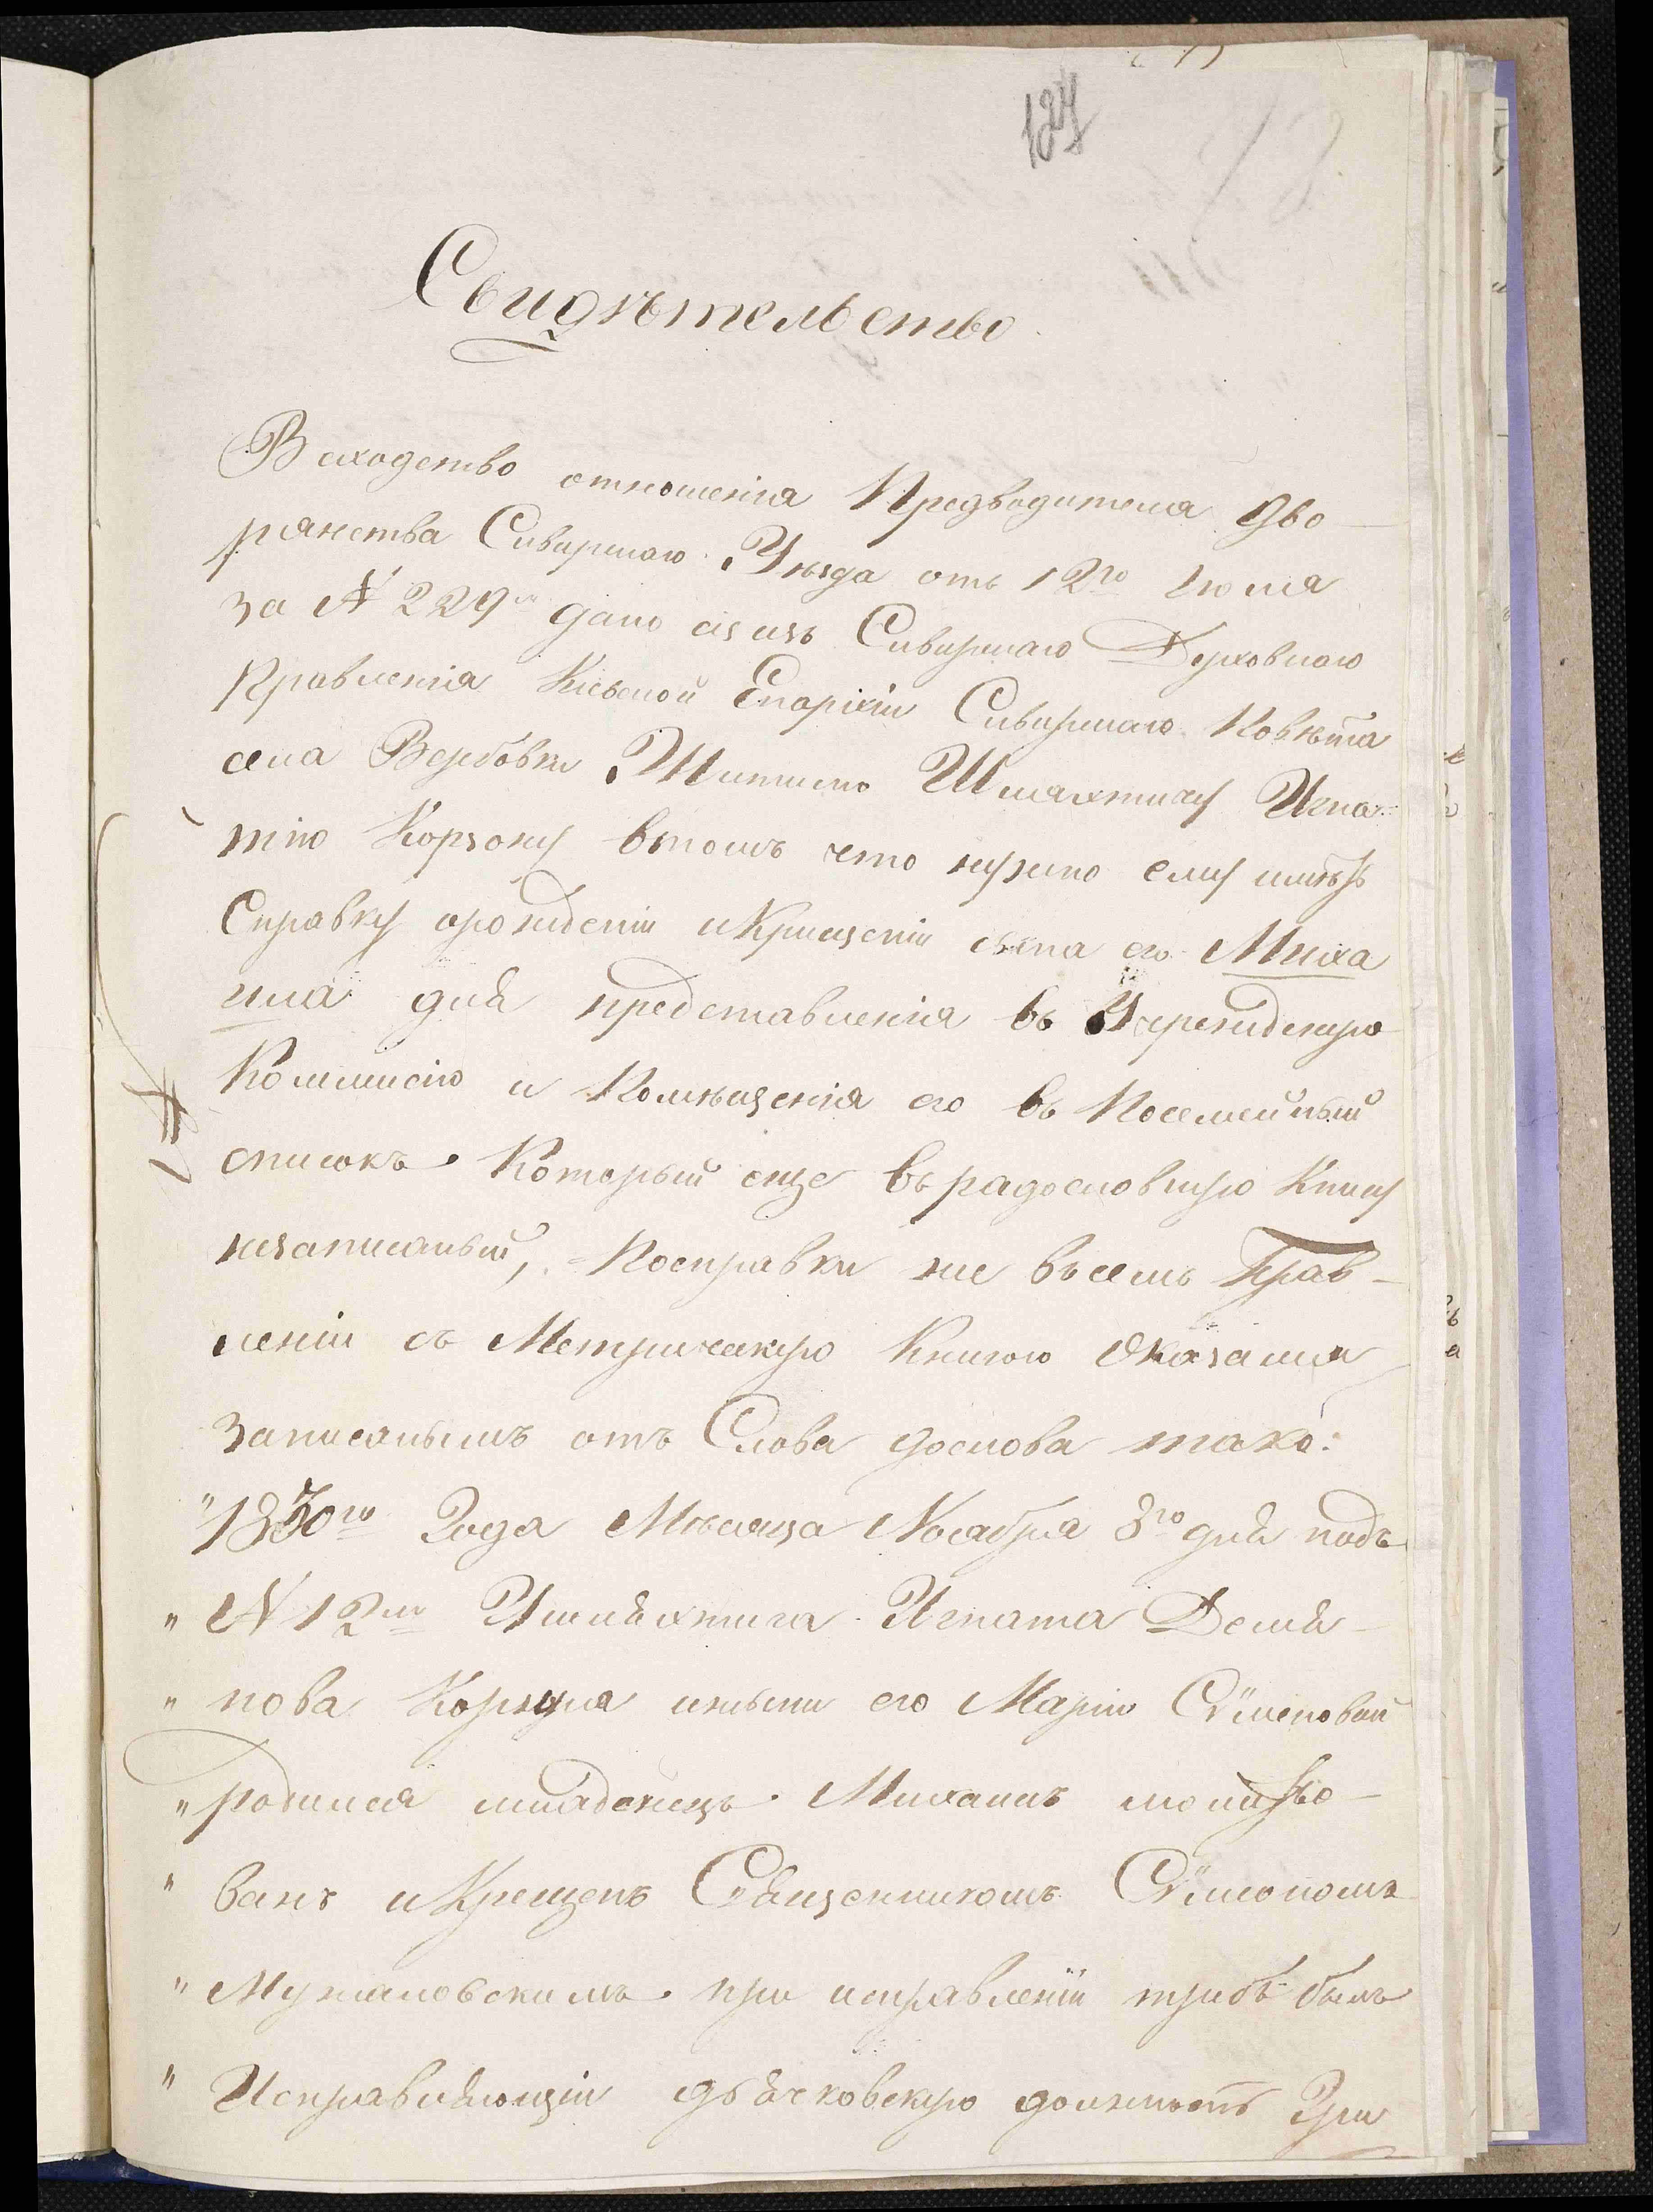 127
Свидѣтельство
Всходство отношенія Предводителя дво-
рянства Сквирскаго Уѣзда отъ 12го Іюля
за № 229м дано сіе изъ Сквирскаго Духовнаго
Правленія Кіевской Епархіи Сквирскаго Повѣта
села Вербовки Жителю Шляхтичу Игна-
тію Корзону втомъ что нужно ему имѣть
Справку орождении икрещеніи сына его Миха
ила для представленія въ Учрежденую
Коммисію и Помѣщенія его въ Посемейный
списокъ Который еще въ радословную Книгу
незаписаный, Посправки же всемъ Прав-
леніи съ Метрическую Книгою Оказался
Записанымъ отъ Слова дослова тако:
"1830го Года Мѣсяца Ноября 8го дня подъ
" № 12мъ Ушляхтича Игната Демья-
" нова Корзуна ижены его Маріи Сѵменовой
" родился младенецъ Михаилъ молитво-
" ванъ икрещенъ Священникомъ Сѵмеономъ
" Мужаловскимъ при исправленіи требъ былъ
" Исправляющіи дьячковскую должность При